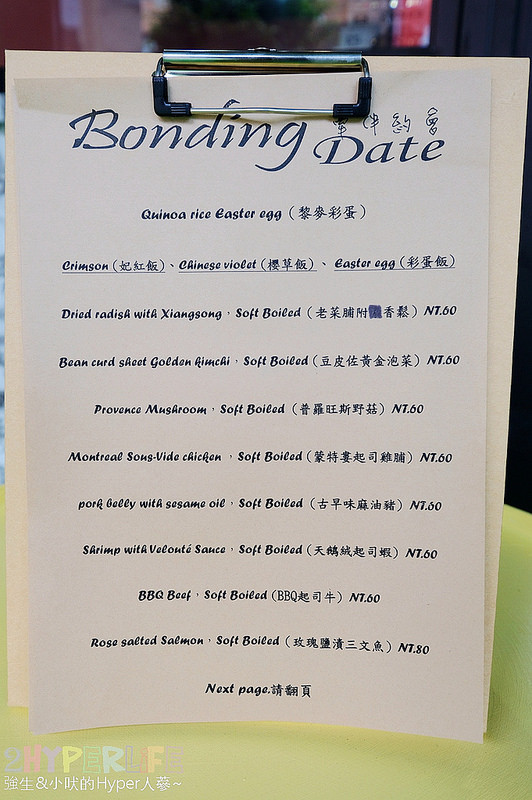 Bonding Date
牽伴約會
Quinoa rice Easter egg (黎麥彩蛋)
Crimson (妃紅飯)、Chinese violet (櫻草飯)、 Easter egg (彩蛋飯)
Dried radish with Xiangsong,Soft Boiled (老菜脯附香鬆) NT.60
Bean curd sheet Golden kimchi,Soft Boiled (豆皮佐黃金泡菜) NT.60
Provence Mushroom,Soft Boiled (普羅旺斯野菇) NT.60
Montreal Sous-Vide chicken ,Soft Boiled (蒙特婁起司雞脯) NT.60
pork belly with sesame oil,Soft Boiled (古早味麻油豬) NT.60
Shrimp with Velouté Sauce,Soft Boiled (天鵝絨起司蝦) NT.60
BBQ Beef,Soft Boiled (BBQ起司牛) NT.60
Rose salted Salmon,Soft Boiled (玫瑰鹽漬三文魚) NT.80
Next page.請翻頁
2HYPERLIFE
強生&小吠的Hyper人蔘~